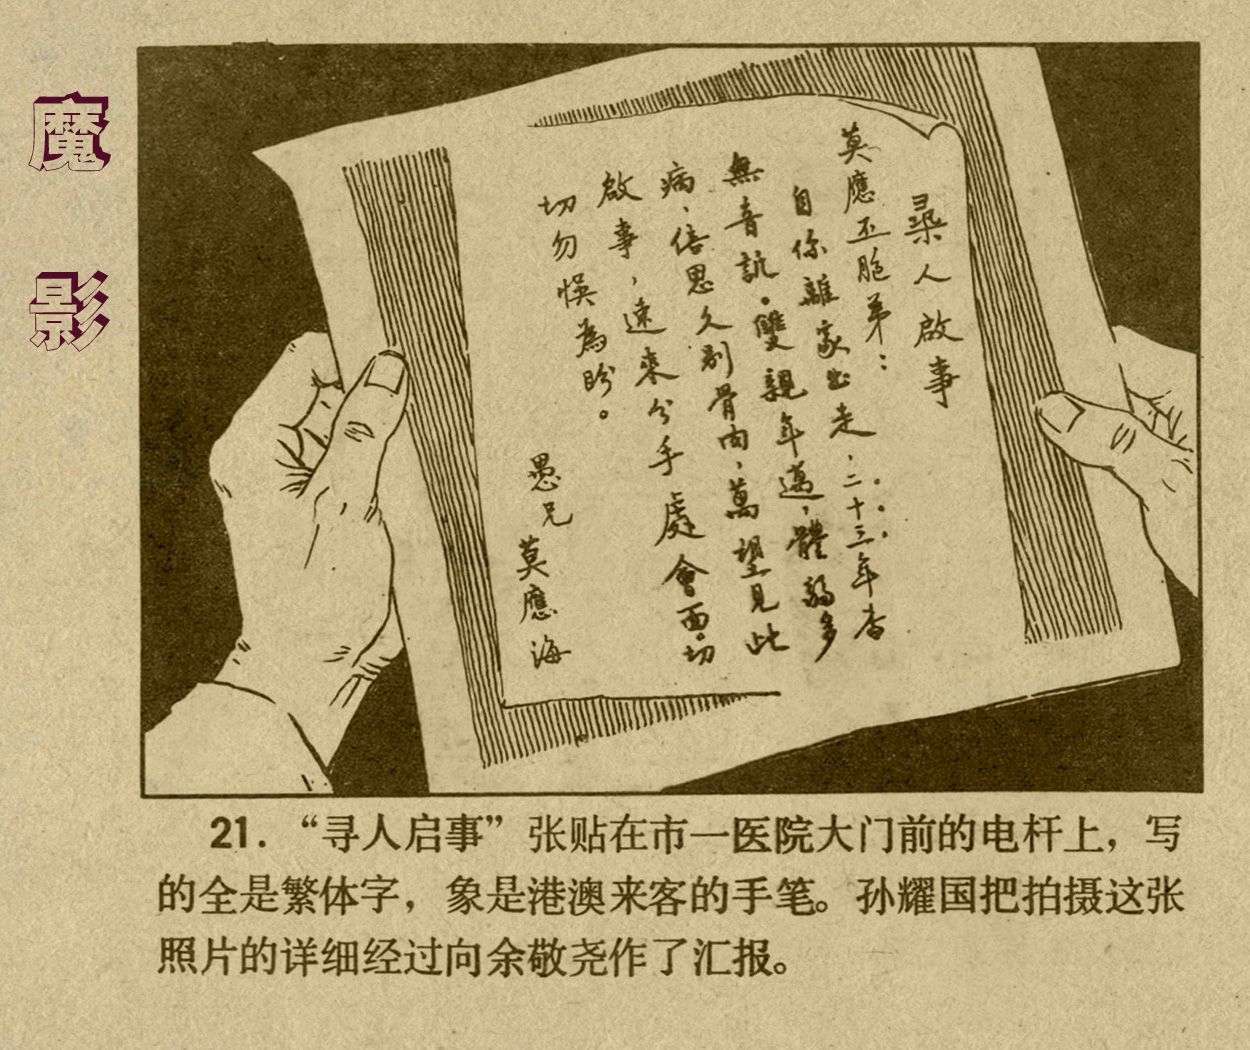 魔影
尋人啟事
莫應丕胞弟：
自你離家出走，二十三年杳
無音訊。雙親年邁，體弱多
病，倍思久別骨肉，萬望見此
啟事，速來分手處會面。切
切勿悮為盼。
愚兄
莫應海
21．“寻人启事”张贴在市一医院大门前的电杆上，写
的全是繁体字，象是港澳来客的手笔。孙耀国把拍摄这张
照片的详细经过向余敬尧作了汇报。